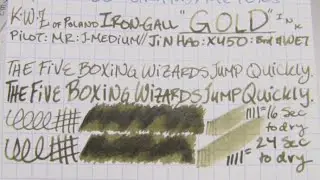 K.W.Z of POLAND IRON-GALL "GOLD" INK
PILOT: MR: J-MEDIUM // JIN HAO: X450: WET
THE FIVE BOXING WIZARDS JUMP QUICKLY.
THE FIVE BOXING WIZARDS JUMP QUICKLY.
= 16 SEC
to dry
= 24 SEC
to dry